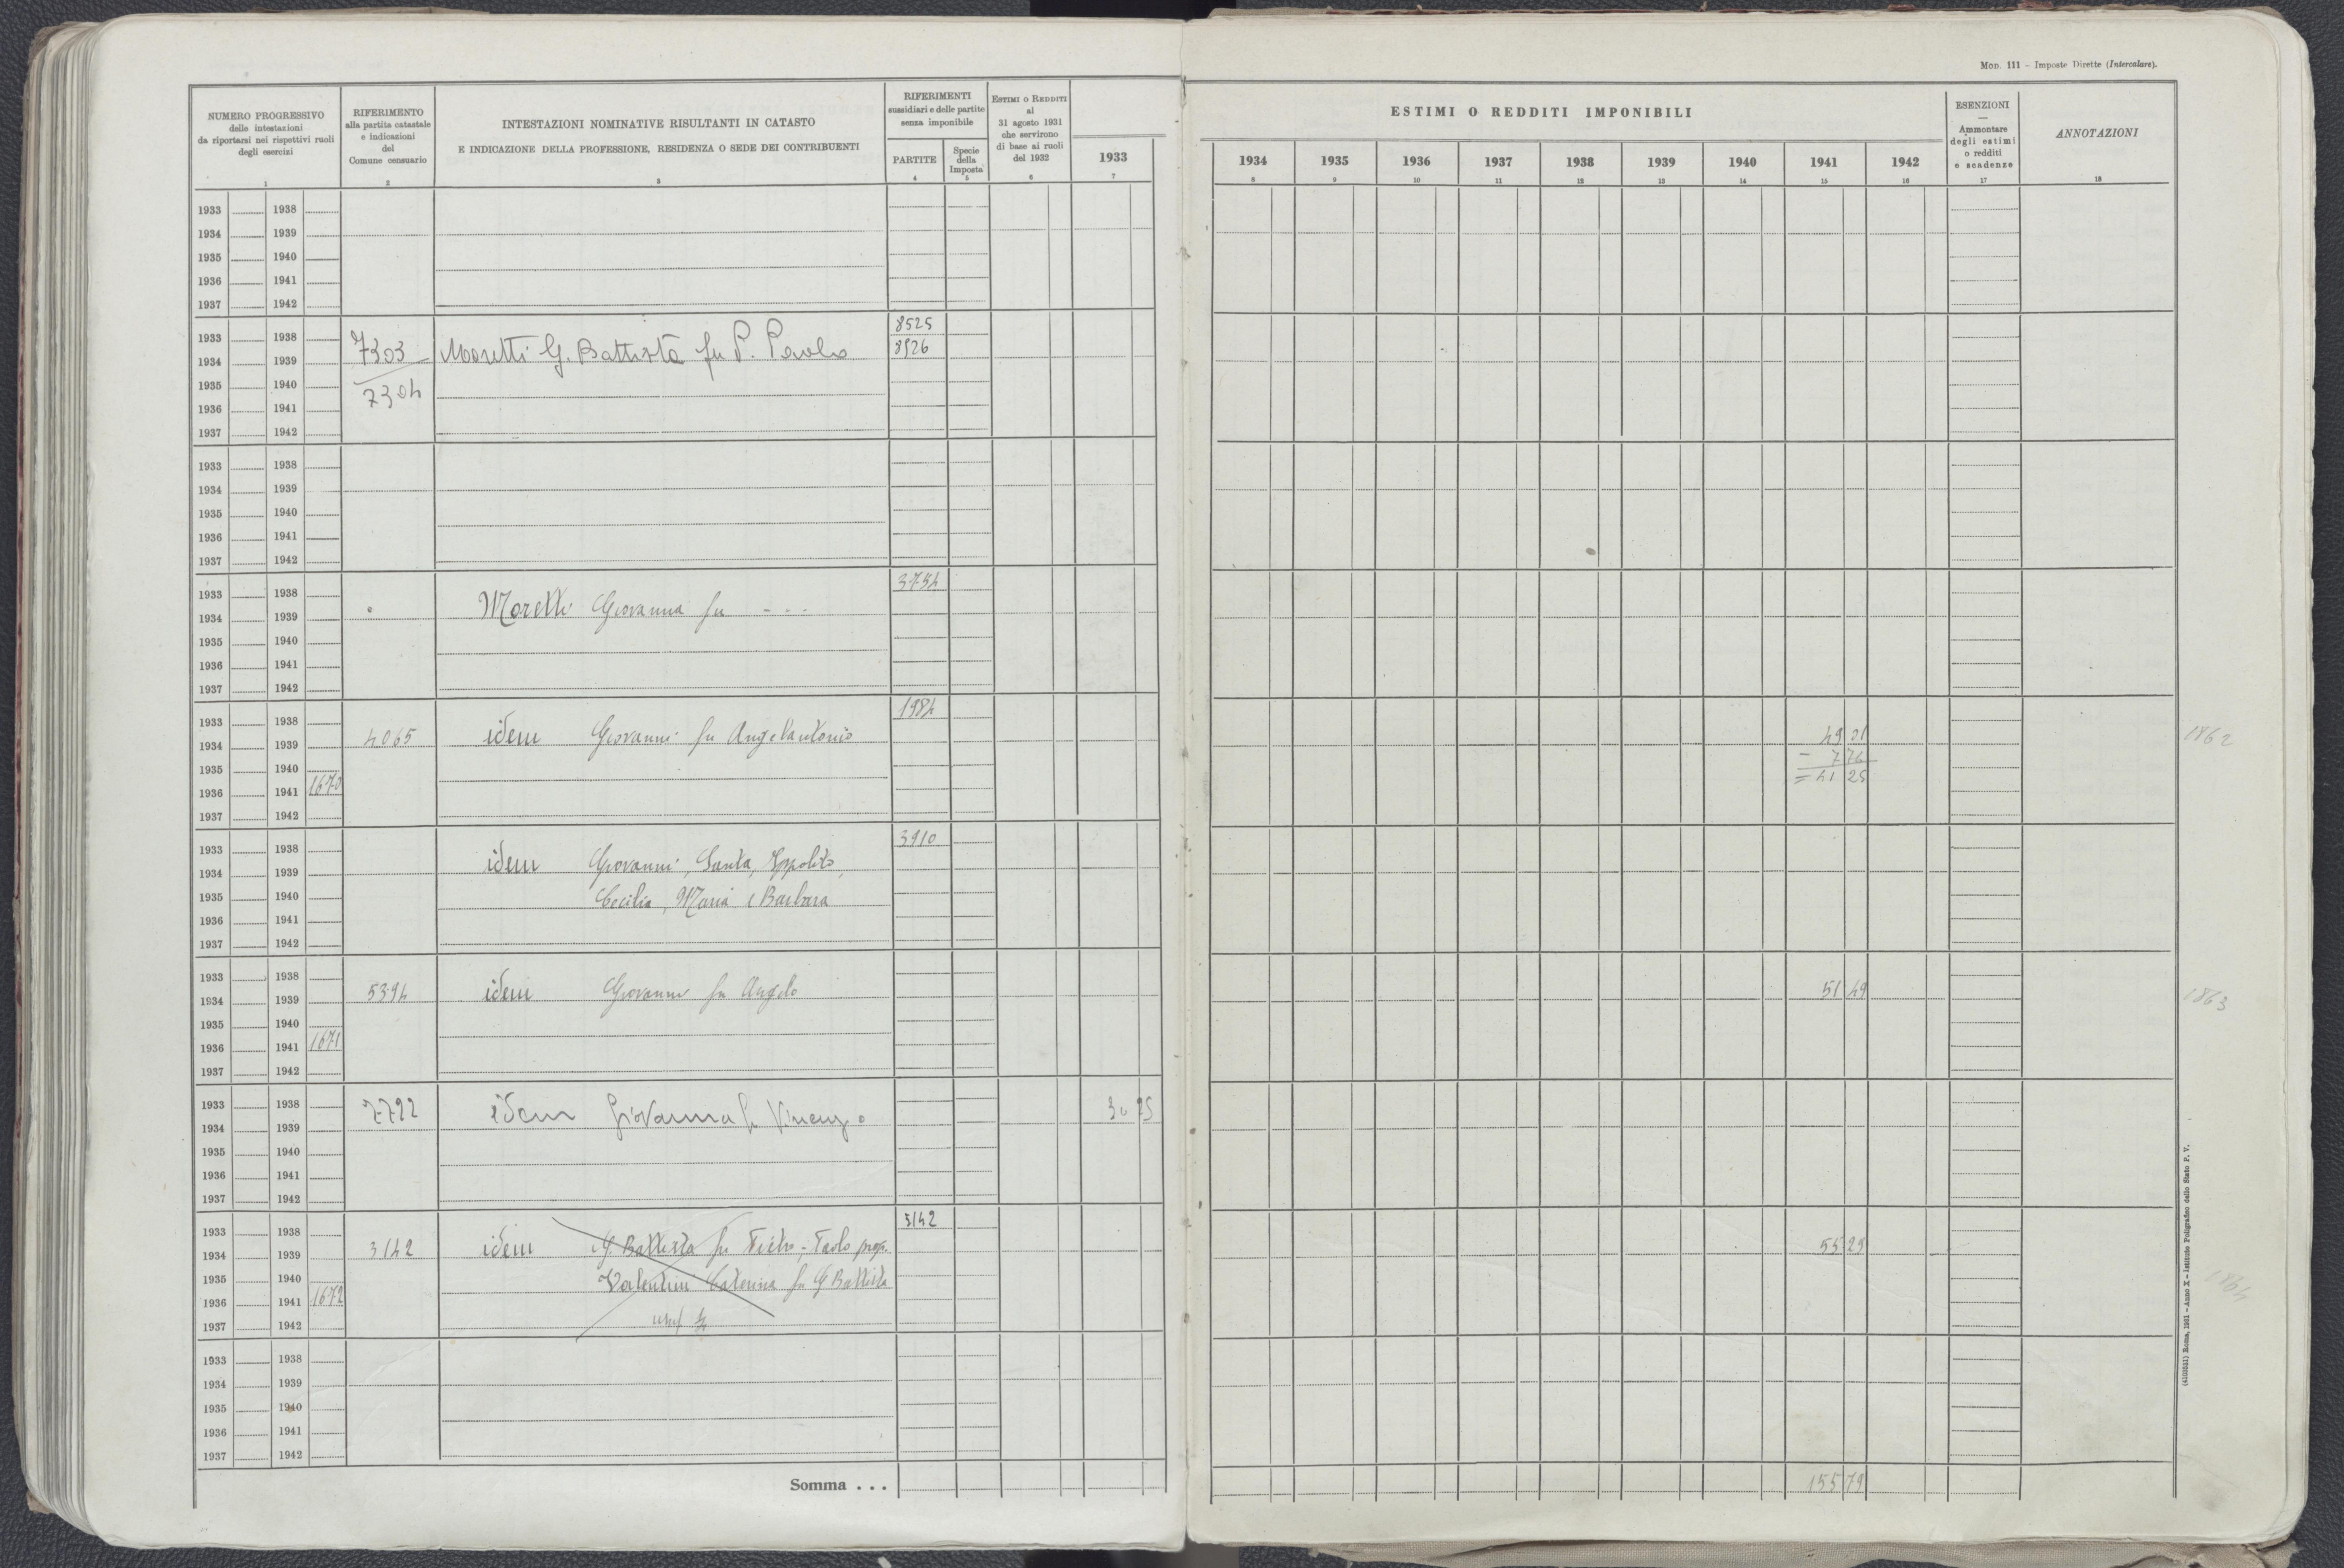 Mod. 111 – Imposte Dirette (Intercalare).
NUMERO PROGRESSIVO
delle intestazioni
da riportarsi nei rispettivi ruoli
degli esercizi
1
RIFERIMENTO
alla partita catastale
e indicazioni
del
Comune censuario
2
INTESTAZIONI NOMINATIVE RISULTANTI IN CATASTO
E INDICAZIONE DELLA PROFESSIONE, RESIDENZA O SEDE DEI CONTRIBUENTI
3
RIFERIMENTI
sussidiari e delle partite
senza imponibile
PARTITE
4
Specie
della
Imposta
5
Estimi o Redditi
al
31 agosto 1931
che servirono
di base ai ruoli
del 1932
6
1933
7
ESTIMI O REDDITI IMPONIBILI
1934 1935 1936 1937 1938 1939 1940 1941 1942
8 9 10 11 12 13 14 15 16
ESENZIONI
—
Ammontare
degli estimi
o redditi
e scadenze
17
ANNOTAZIONI
18
1933 1938
1934 1939
1935 1940
1936 1941
1937 1942
8525
1933 1938
1934 1939 7303 Moretti G. Battista fu P. Paolo 8526
1935 1940
7304
1936 1941
1937 1942
1933 1938
1934 1939
1935 1940
1936 1941
1937 1942
3754
1933 1938
1934 1939 Moretti Giovanna fu - - -
1935 1940
1936 1941
1937 1942
1984
1933 1938
1934 1939 4065 idem Giovanni fu Angelantonio 49 01 1862
1935 1940 – 7 76
1936 1941 1670 = 41 25
1937 1942
3910
1933 1938
1934 1939 idem Giovanni, Santa, Ippolito,
1935 1940 Cecilia, Maria e Barbara
1936 1941
1937 1942
1933 1938
1934 1939 5394 idem Giovanni fu Angelo 51 49 1863
1935 1940
1936 1941 1671
1937 1942
1933 1938 7722 idem Giovanna fu Vincenzo 30 75
1934 1939
1935 1940
1936 1941
1937 1942
3142
1933 1938
1934 1939 3142 idem G. Battista fu Pietro-Paolo prop.
55 29
1935 1940 Valentini Caterina fu G Battista
1864
1936 1941 1672
1937 1942 usuf
1933 1938
1934 1939
1935 1940
1936 1941
1937 1942
Somma . . . 155 79
(4103531) Roma, 1931 – Anno X – Istituto Poligrafico dello Stato P. V.